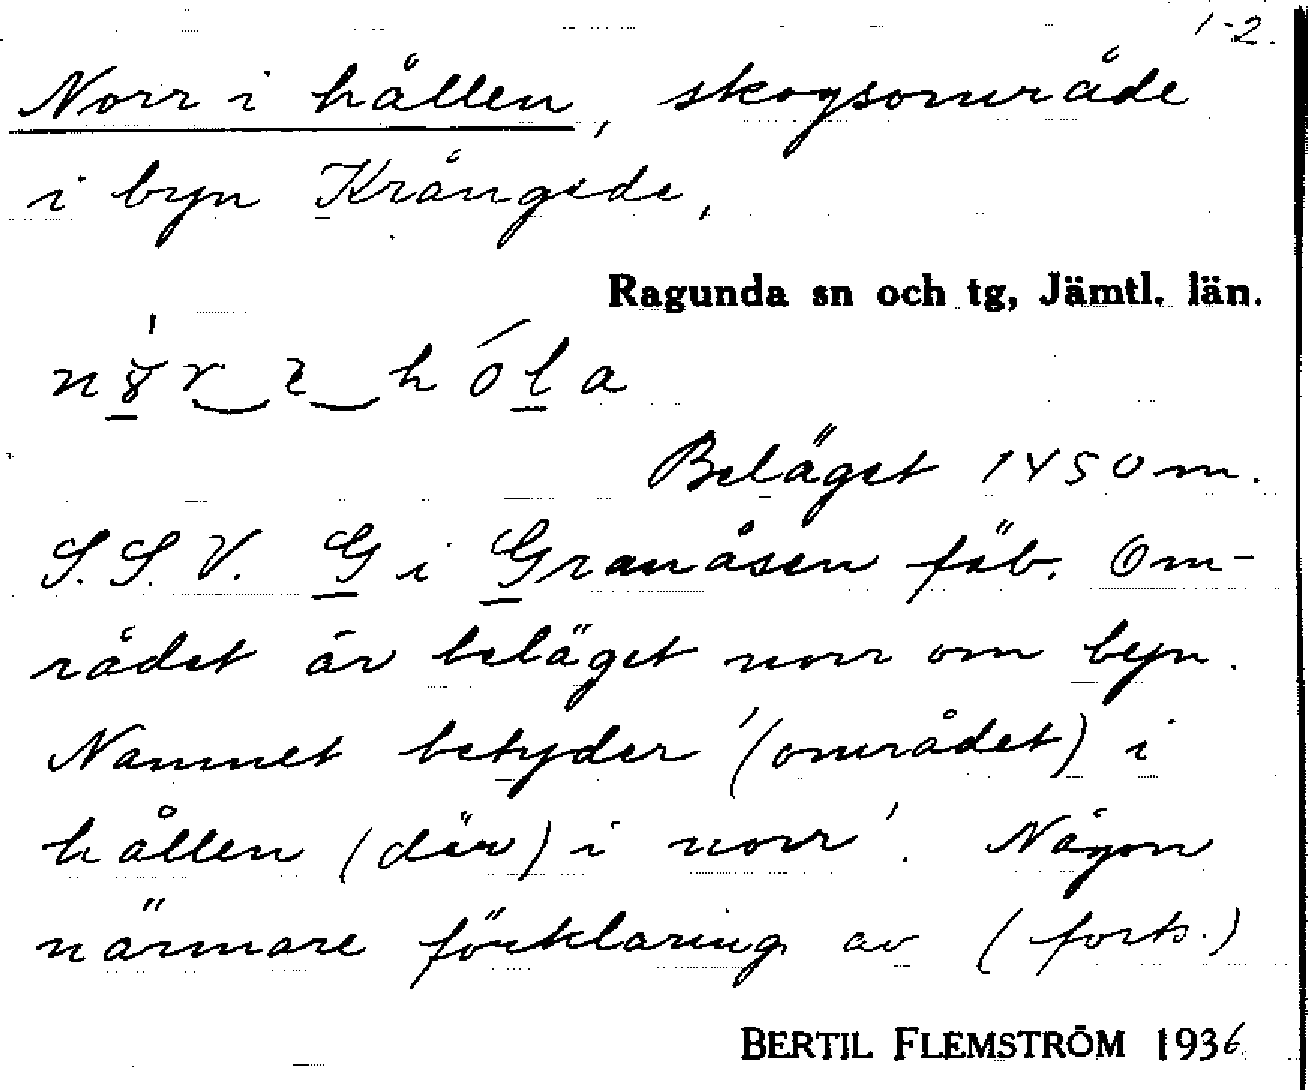 1-2.
Norr i hållen, skogsområde
i byn Krångede,
Ragunda sn och tg, Jämtl. län.
Beläget 1450 m.
S.S.V. G i Granåsen fäb. Om-
rådet är beläget norr om byn.
Namnet betyder '(området) i
hållen (där) i norr'. Någon
närmare förklaring av (forts.)
BERTIL FLEMSTRÖM 1936